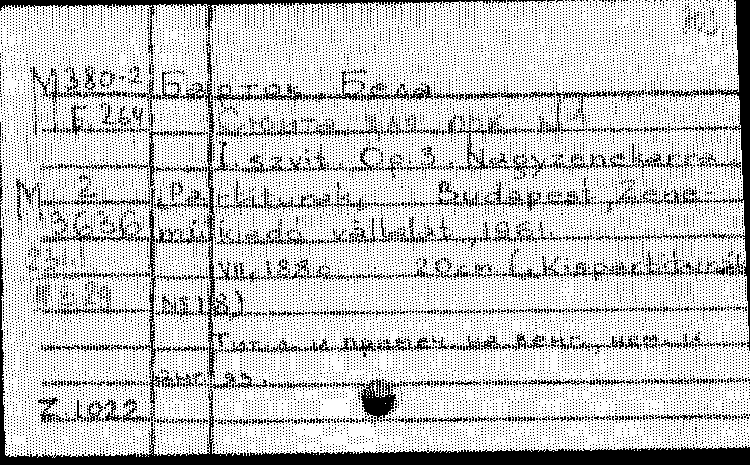 М 280-2 Барток, Бела
Б 264 Сюита для орк. №1
I. szvit. Op. 3. Nagyzenekarra.
М 2 (Partitúrák). Budapest, Zene-
3636 műkiadó vállalat, 1961.
VII, 188 с. 20 cm (Kispartitúrák
№ 18)
Тит. л. и предисл. на венг., нем. и
англ. яз.
Z 1022